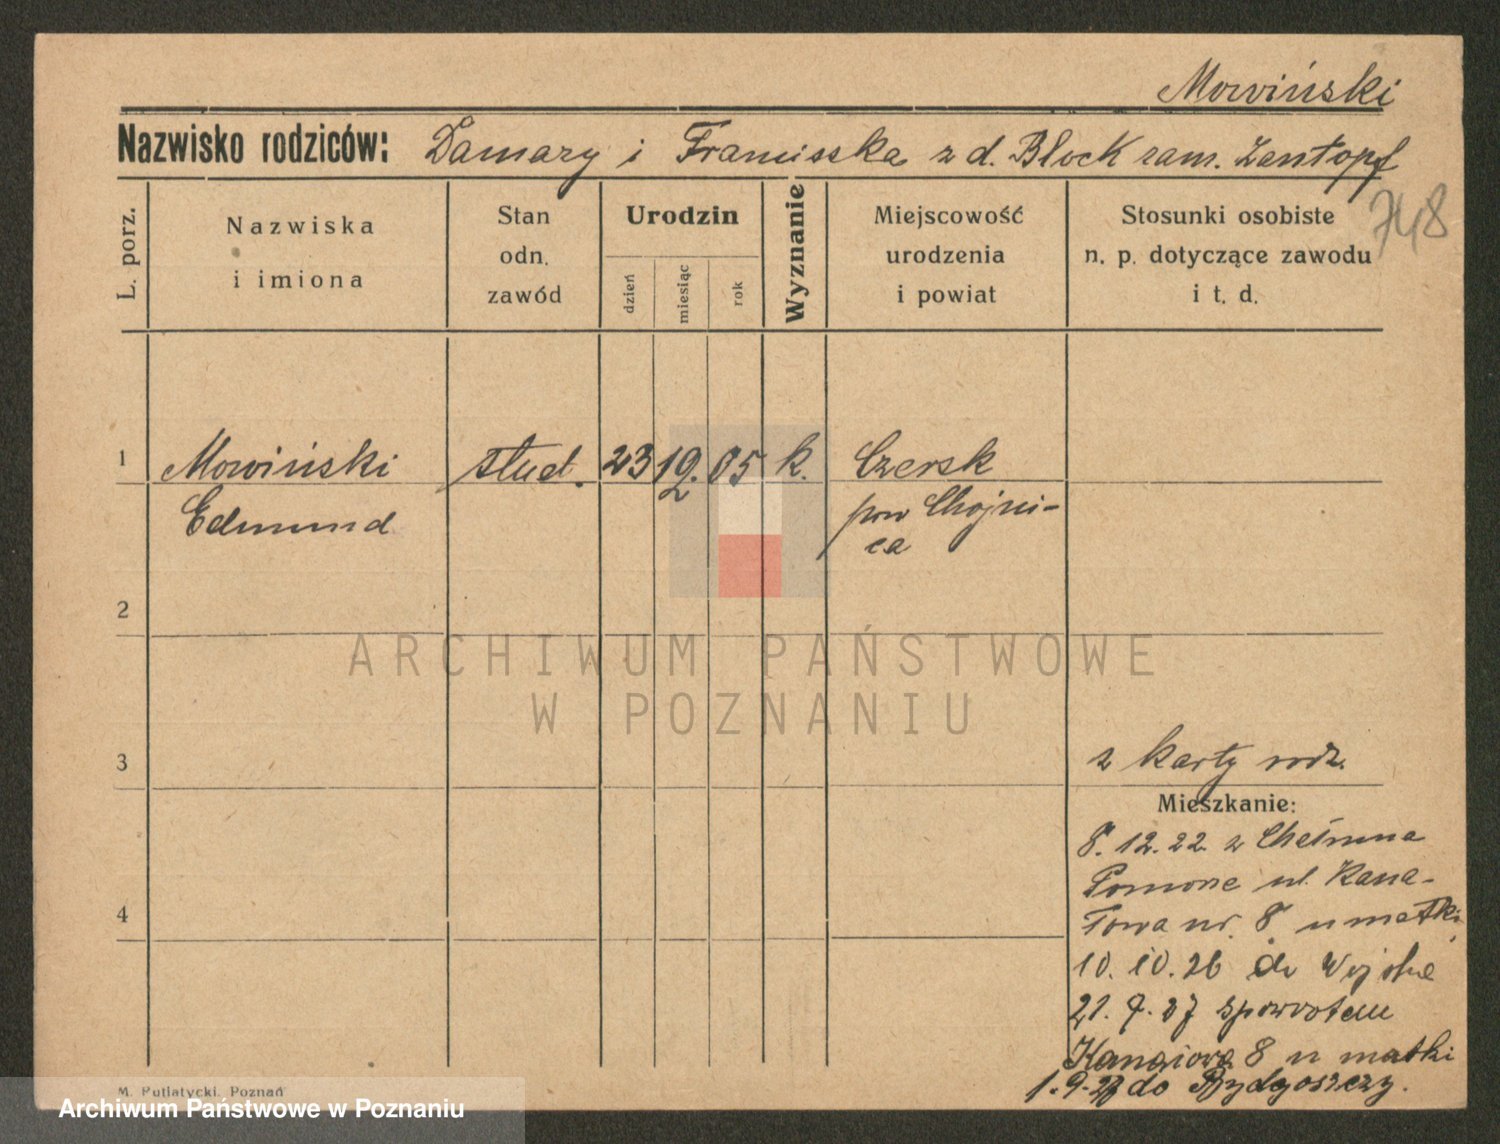 Mowiński
Nazwisko rodziców: Damazy i Franciszka z d. Block zam. Zantopf
748
L. porz.
Nazwiska
i imiona
Stan
odn.
zawód
Urodzin
dzień
miesiąc
rok
Wyznanie
Miejscowość
urodzenia
i powiat
Stosunki osobiste
n. p. dotyczące zawodu
i t. d.
1 Mowiński stud. 23 12. 05 k. Czersk
Edmund pow Chojni-
ca
2
ARCHIWUM PAŃSTWOWE
W POZNANIU
3 z karty rodz.
Mieszkanie:
8. 12. 22 z Chełmna
Pomorze ul. Kana-
łowa nr. 8 u matki
10. 10. 26 do Wojska
4
21. 9. 27 spowrotem
Kanałowa 8 u matki
1. 9. do Bydgoszczy.
M. Putiatycki, Poznań
Archiwum Państwowe w Poznaniu